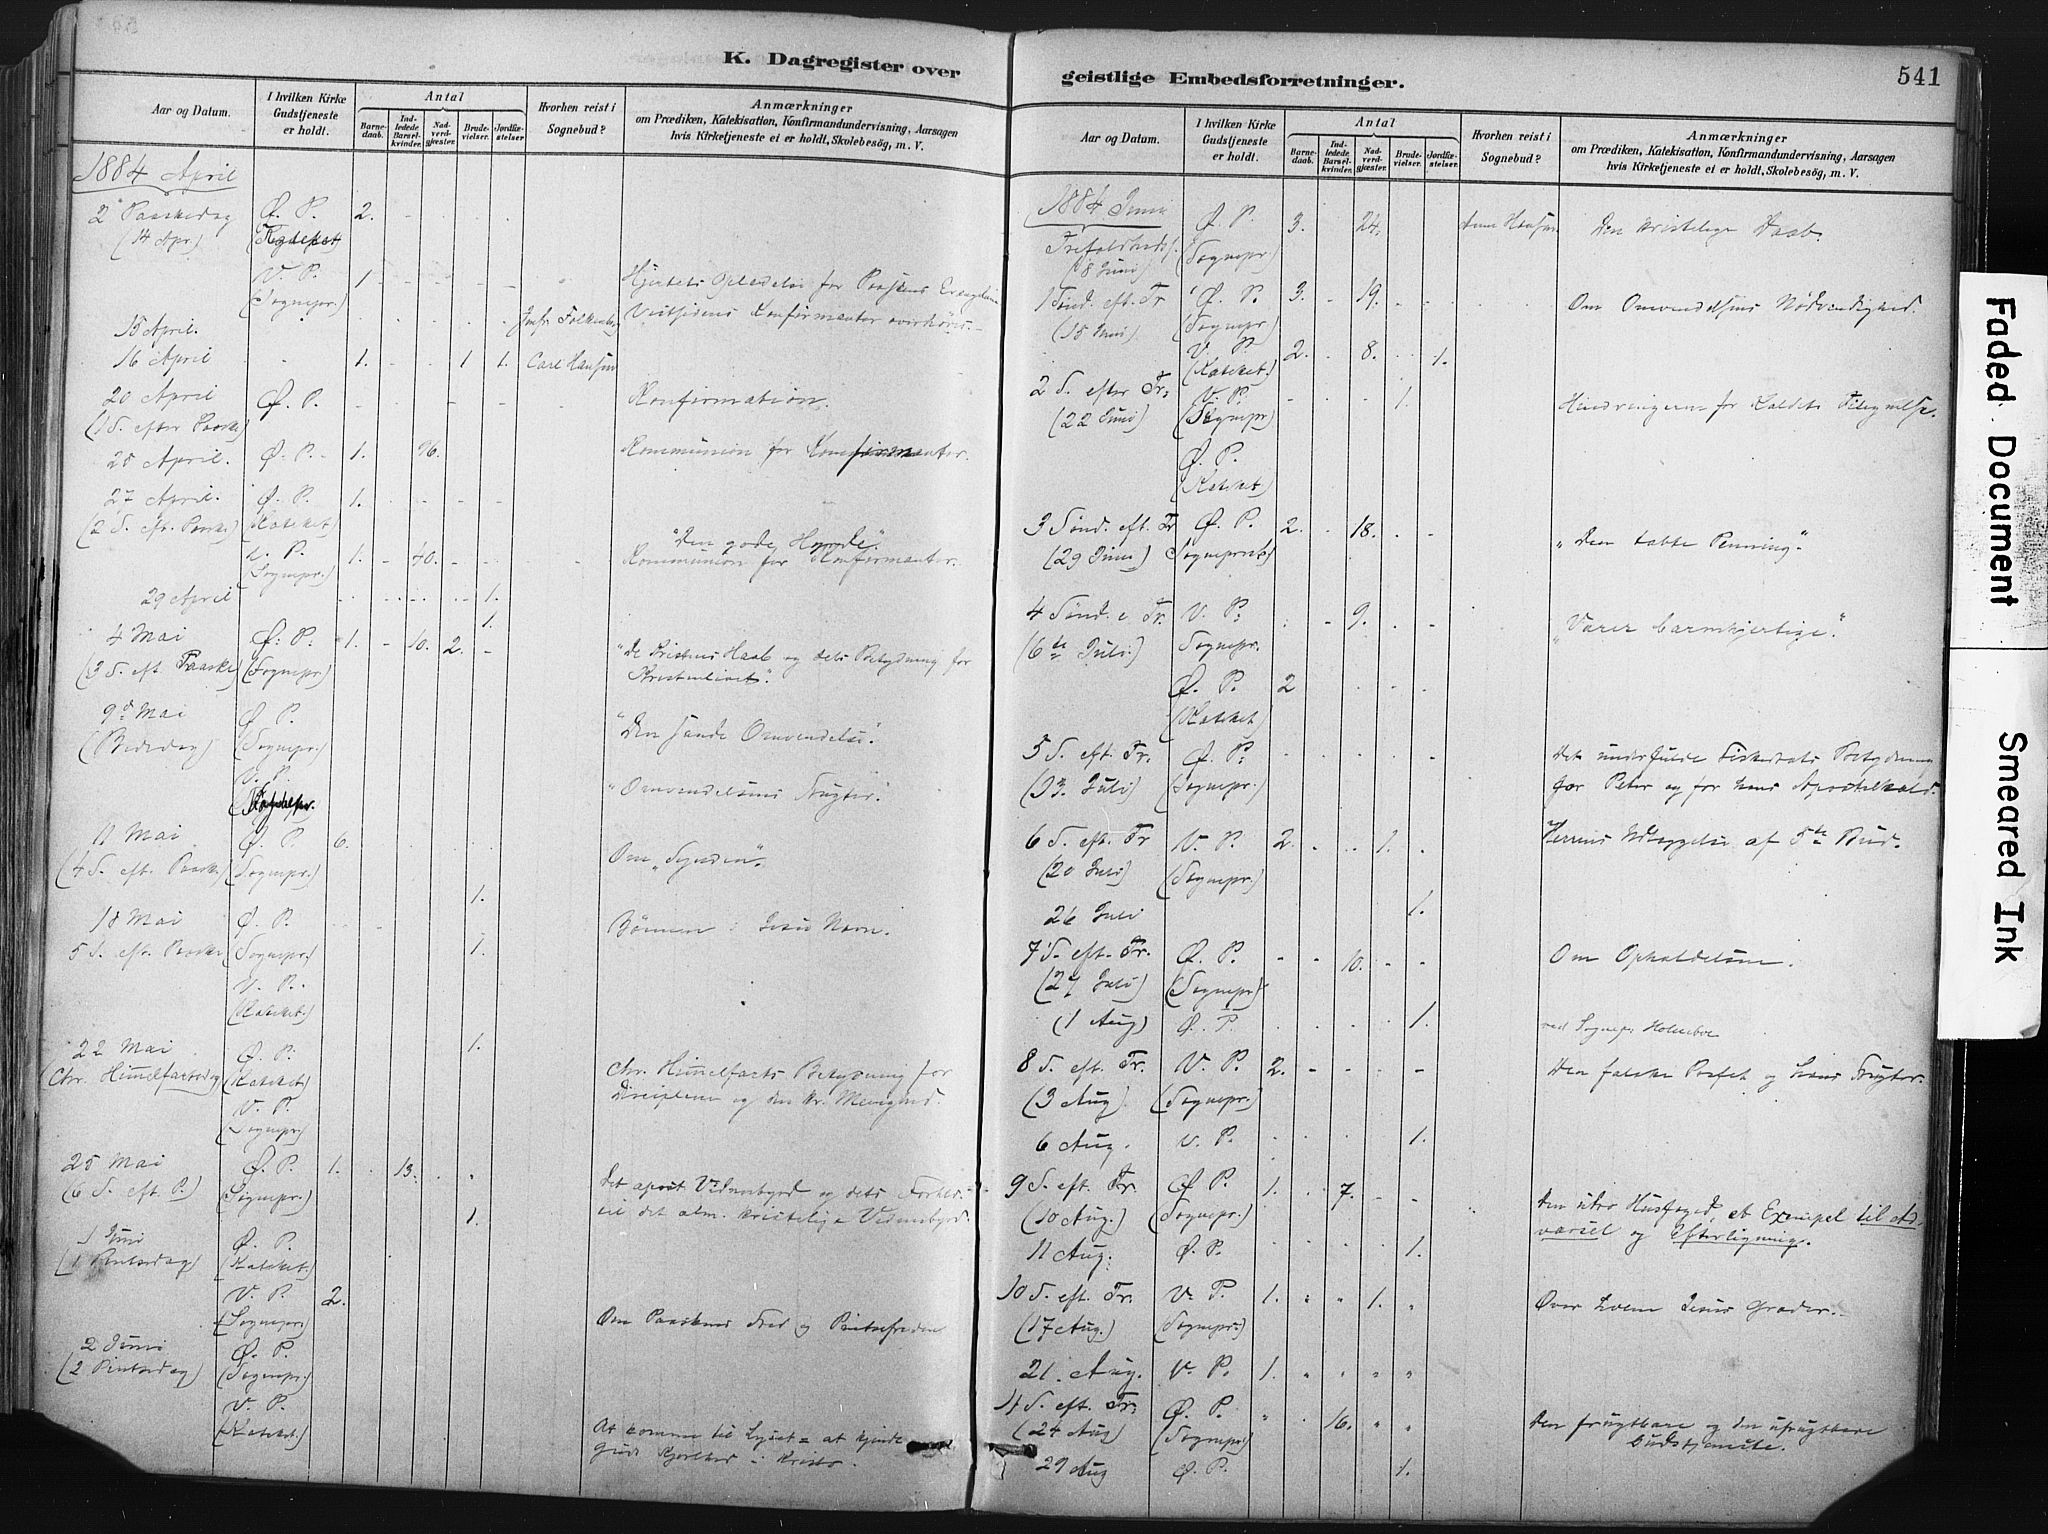 K. Dagregister over
Aar og Datum.
I hvilken Kirke Gudstjeneste er holdt.
Antal
Barne-daab.
Ind-ledede Barsel-kvinder.
Nad-verd-gjæster.
Brude-vielser.
Jordfæ-stelser
Hvorhen reist i Sognebud?
Anmærkninger
om Prædiken, Katekisation, Konfirmandundervisning, Aarsagen
hvis Kirketjeneste ei er holdt, Skolebesög, m. V.
1884 April
2 Paaskedag Ø. P. 2.
(14 Apr.)
V. P. 1
(Sognepr.) Hjertets Oplædelse for Paaskens
15 April. Vestsidens Konfirmanter overhøres.
16 April 1. 1 1. Carl Hansen
20 April Ø. P. Konfirmation.
(1 S. efter Paaske)
Ø. P. 1. 96. Kommunion for Konfirmanter.
27 April. Ø. P. 1.
(2 S. eft. Paaske) (Kateket)
"Den gode Hyrde".
V. P. 1. 40. Kommunion for Konfirmanter.
(Sognepr.)
29 April 1.
1.
4 Mai Ø. P. 1. 10. 2.
(3 S. eft. Paaske) (Sognepr.) "De Kristnes Haab og dets Betydning for
Kristenlivet".
9d Mai Ø P.
(Bededag) (Sognepr.) "Den sande Omvendelse".
V. P.
"Omvendelsens Frugter.
11 Mai Ø. P. 6.
(4 S. eft. Paaske) (Sognepr.) Om "Synden".
1.
18 Mai Ø. P.
5 S. eft. Paaske (Sognepr.) 1. Bønnen i Jesu Navn.
V. P.
(Kateket.)
22 Mai Ø. P. 1.
Chr. Himmelfartsdag (Kateket) Chr. Himmelfarts Betydning for
V. P. Disciplene og den kr. Menighed.
(Sognepr.)
25 Mai Ø. P. 1. 13.
(6 S. eft. P.) (Sognepr.) Det apost. Vidnesbyrd og dets Forhold
1. til det alm. kristelige Vidnesbyrd.
1 Juni Ø. P.
(1 Pintsedag) (Kateket.)
V. P. 2.
(Sognepr.) Om Paaskens Fred og Pintsefreden
2 Juni Ø. P.
(2 Pintsedag) (Sognepr.)
V. P.
(Kateket.) At komme til Lyset = at kjende
Guds Kjærlhed i Kristo.
geistlige Embedsforretninger.
541
Aar og Datum.
I hvilken Kirke Gudstjeneste er holdt.
Antal
Barne-daab.
Ind-ledede Barsel-kvinder.
Nad-verd-gjæster.
Brude-vielser.
Jordfæ-stelser.
Hvorhen reist i Sognebud?
Anmærkninger
om Prædiken, Katekisation, Konfirmandundervisning, Aarsagen
hvis Kirketjeneste ei er holdt, Skolebesög, m. V.
1884 Juni
Ø. P. 3. 24. Anne Hansen Den kristelige Daab.
(Sognepr.)
(8 Juni)
1 Sønd. eft. Tr. Ø. P. 3. 19. Om Omvendelsens Nødvendighed.
(15 Juni) (Sognepr.)
V. P. 2. 8. 1.
(Kateket.)
2 S. efter Tr. V. P. 1. Hindringerne for Kaldets Tilegnelse.
(22 Juni) (Sognepr)
Ø. P.
(Kateket)
3 Sønd. eft. Tr Ø. P. 2. 18. "Den tabte Penning".
(29 Juni)
4 Sønd. e Tr. V. P. 9. "Værer barmhjertige".
(6te Juli.) Sognepr.
Ø. P. 2
(Kateket)
5 S. eft. Tr. Ø. P. Det underfulde Fiskedræts Betydning
(13. Juli) (Sognepr.) for Peter og for hans Apostelkald.
6 S. eft. Tr V. P. 2. 1. Herrens Udlæggelse af 5te Bud.
(20 Juli) (Sognepr.)
26 Juli 1.
7 S. eft. Tr. Ø. P. 10. Om Opholdelsen.
(27 Juli) (Sognepr)
(1 Aug) Ø. P 1. ved Sognepr. Holmboe
8 S. eft. Tr. V. P. 2. Den falske Profet og hans Frugter.
(3 Aug) (Sognepr.)
6 Aug. V. P. 1.
9 S. eft. Tr. Ø P. 1. 7. Den utro Husfoged, et Exempel til Ad-
(10 Aug.) (Sognepr.) varsel og Efterligning.
11 Aug. Ø. P. 1.
10 S. eft. Tr. V. P. 1. 1. Over hvem Jesus Græder.
(17 Aug.) (Sognepr.)
21. Aug. V. P. 1.
11 S. eft. Tr. Ø. P. 16. Den frugtbare og den ufrugtbare
(24 Aug) (Sognepr.) Gudstjeneste.
29 Aug Ø. P. 1.
Faded Document
Smeared Ink